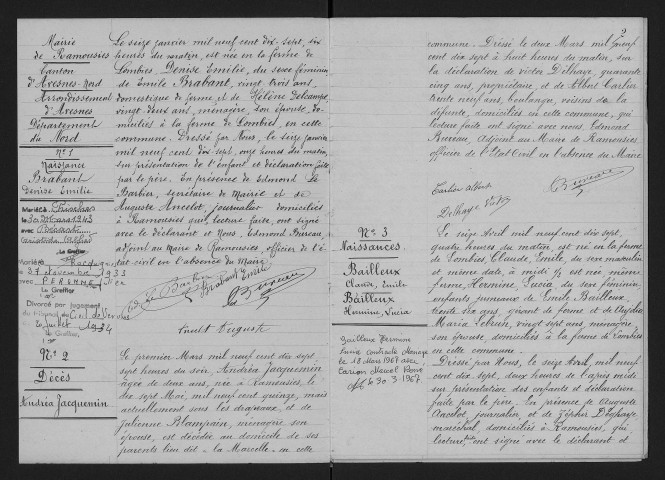 Mairie
de Ramousies
Canton
d'Avesnes-Nord
Arrondissement
d'Avesnes
Département
du Nord
N° 1
Naissance
Brabant
Denise Emilie
Mariée à
le 30 Mars 1943
avec
Le Greffier
Mariée à
le 27 Novembre 1933
avec
Le Greffier
Divorcé par jugement
du tribunal Civil de
Juillet 1934
Le Greffier,
N° 2
Décès
Andréa Jacquemin
Le seize janvier mil neuf cent dix-sept, six
heures du matin, est née en la ferme de
Lombies, Denise Emilie, du sexe féminin,
de Emile Brabant, vingt trois ans,
domestique de ferme, et de Hélène Delcampe,
vingt deux ans, ménagère, son épouse, do-
miciliés à la ferme de Lombies, en cette
commune. Dressé par Nous, le seize janvier
mil neuf cent dix sept, onze heures du matin,
sur présentation de l'enfant et déclaration faite
par le père. En présence de Edmond Le
Barbier, secrétaire de Mairie et de
Auguste Ancelot, journalier domiciliés
à Ramousies qui, lecture faite, ont signé
avec le déclarant et Nous, Edmond Bureau
adjoint au Maire de Ramousies, officier de l'é-
tat civil en l'absence du Maire.
Ed. Le Barbier
Brabant Emile
Ed. Bureau
Auguste
Le premier Mars mil neuf cent dix sept
sept heures du soir, Andréa Jacquemin
âgée de deux ans, née à Ramousies, le
dix sept Mai, mil neuf cent quinze, mais
actuellement sous les drapeaux, et de
Julienne Blampain, ménagère son
épouse, est décédée au domicile de ses
parents lieu dit - la Marcelle - en cette
2
commune. Dressé le deux Mars mil neuf
cent dix sept à huit heures du matin, sur
la déclaration de Victor Delhaye, quarante
cinq ans, propriétaire, et de Albert Carlier
trente neuf ans, boulanger, voisins de la
défunte, domiciliés en cette commune, qui
lecture faite ont signé avec nous, Edmond
Bureau, Adjoint au Maire de Ramousies
officier de l'Etat Civil en l'absence du Maire
Carlier albert
Delhaye Victor
Bureau
N° 3
Naissances
Bailleux
Claude, Emile
Bailleux
Hermine, Lucia
Bailleux Hermine
a contracté Mariage
le 18 Mars 1967 avec
Carion Marcel René
le 30.3.1967.
Le seize Avril, mil neuf cent dix sept,
quatre heures du matin, est né en la ferme
de Lombies, Claude, Emile, du sexe masculin
et même date, à midi ½ est née, même
ferme, Hermine, Lucia, du sexe féminin,
enfants jumeaux de Emile Bailleux,
trente six ans, gérant de ferme et de
Maria Lebrun, vingt sept ans, ménagère
son épouse, domiciliés à la ferme de Lombies
en cette commune.
Dressé par Nous, le seize Avril, mil neuf
cent dix sept, deux heures de l'après midi
sur présentation des enfants et déclaration
faite par le père. En présence de Auguste
Ancelot, journalier, et de Zéphir Delhaye
maréchal, domiciliés à Ramousies, qui,
lecture faite, ont signé avec le déclarant et